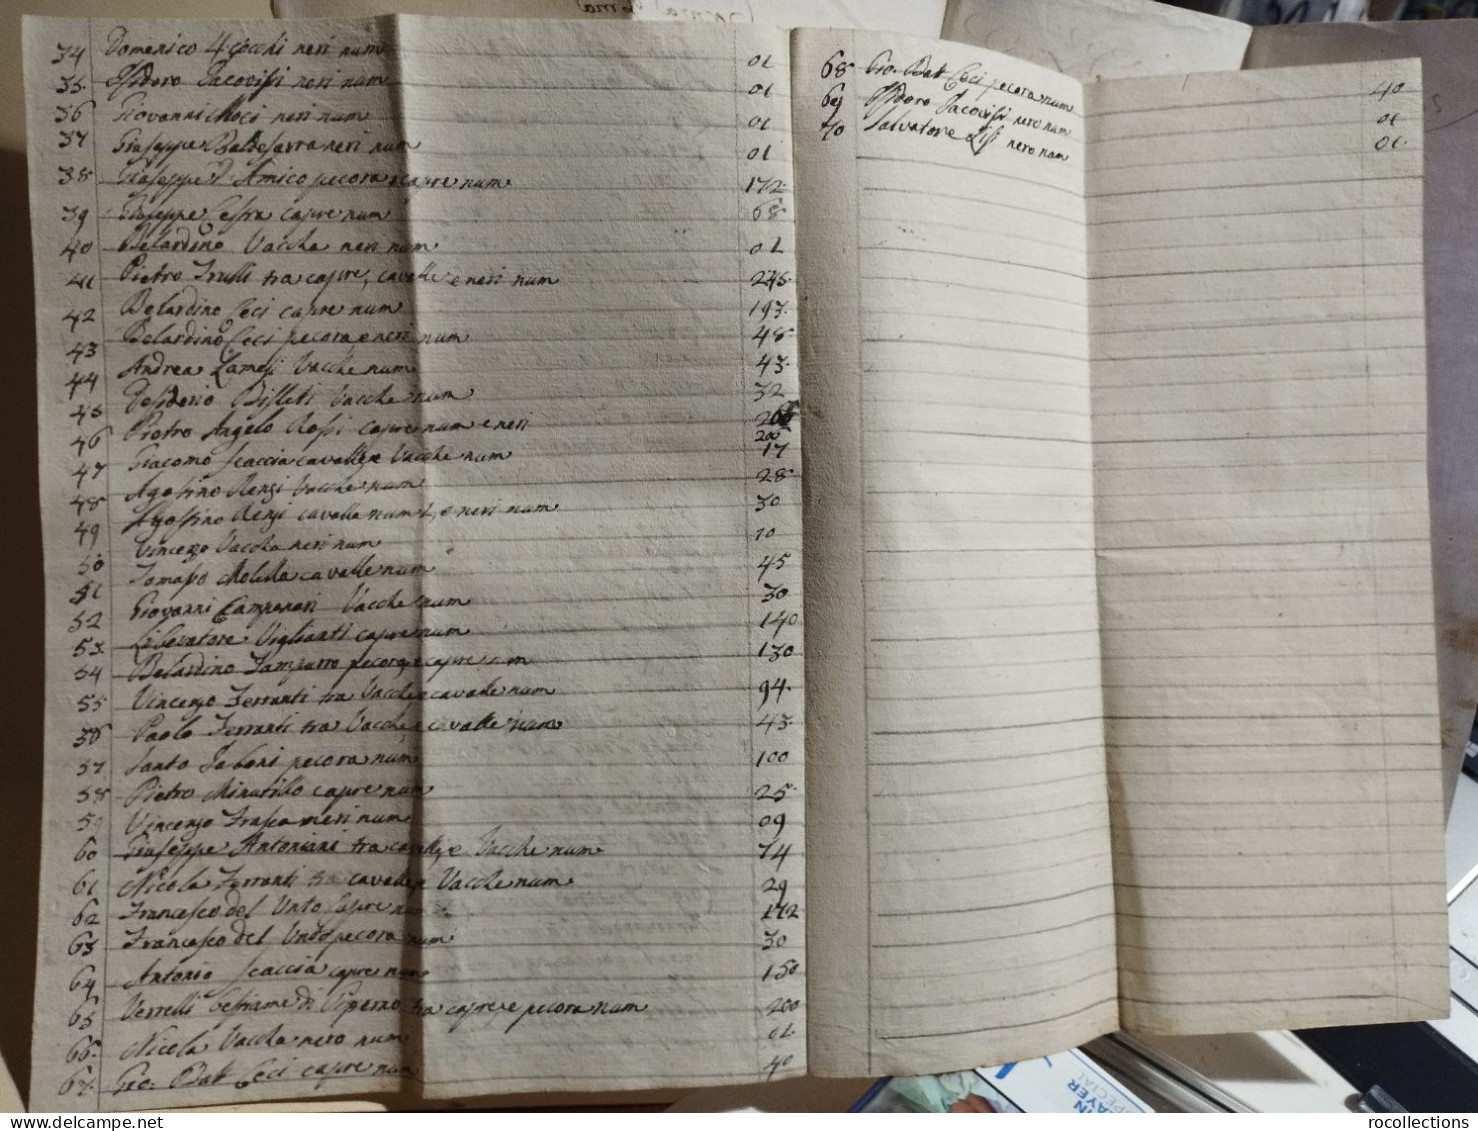 34 Domenico 4 cocchi neri num 01
35. Isidoro Iacovissi neri num 01
36 Giovanni Moci neri num 01
37 Giuseppe Baldesarra neri num 01
38 Giuseppe D'Amico pecora e capre num 172.
39 Giuseppe Cestra capre num 68
40 Belardino Vaccha neri num 01
41 Pietro Trulli tra capre, cavalle e neri num 245.
42 Belardino Ceci capre num 193.
43 Belardino Ceci pecora e neri num 48.
44 Andrea Vacche num 43.
45 Vacche num 32
46 Pietro Angelo Rossi capre num e neri
200
47 Giacomo Scaccia cavalle e Vacche num 17
48 Agostino Renzi Vacche num 28
49 Agostino Renzi cavalla num 1, e neri num 30
50 Vincenzo Vaccha neri num 10
51 Tomasso cavalle num 45
52 Giovanni Campanari Vacche num 30
53 Liberatore Viglianti capre num 140
54 Belardino Tamburro pecora e capre num 130
55 Vincenzo Ferranti tra Vacche e cavalle num 94.
56 Paolo Ferranti tra Vacche e cavalle num 43.
57 Santo Iaboni pecora num 100
58 Pietro Minutillo capre num 25.
59 Vincenzo Frasca neri num 09
60 Giuseppe Antoniani tra cavalle, e Vacche num 74
61 Nicola Ferranti tra cavalle e Vacche num 29
62 Francesco del Unto Capre num 172
63 Francesco del Unto pecora num 30
64 Antonio Scaccia capre num 150
65 Verrelli bestiame di Piperno tra capre e pecora num 200
66. Nicola Vaccha nero num 01.
67. Gio. Bat Ceci capre num 40
68 Gio. Bat Ceci pecora num 40
69 Isidoro Iacovissi nero num 01
70 Salvatore Lisi nero num 01.
rocollections